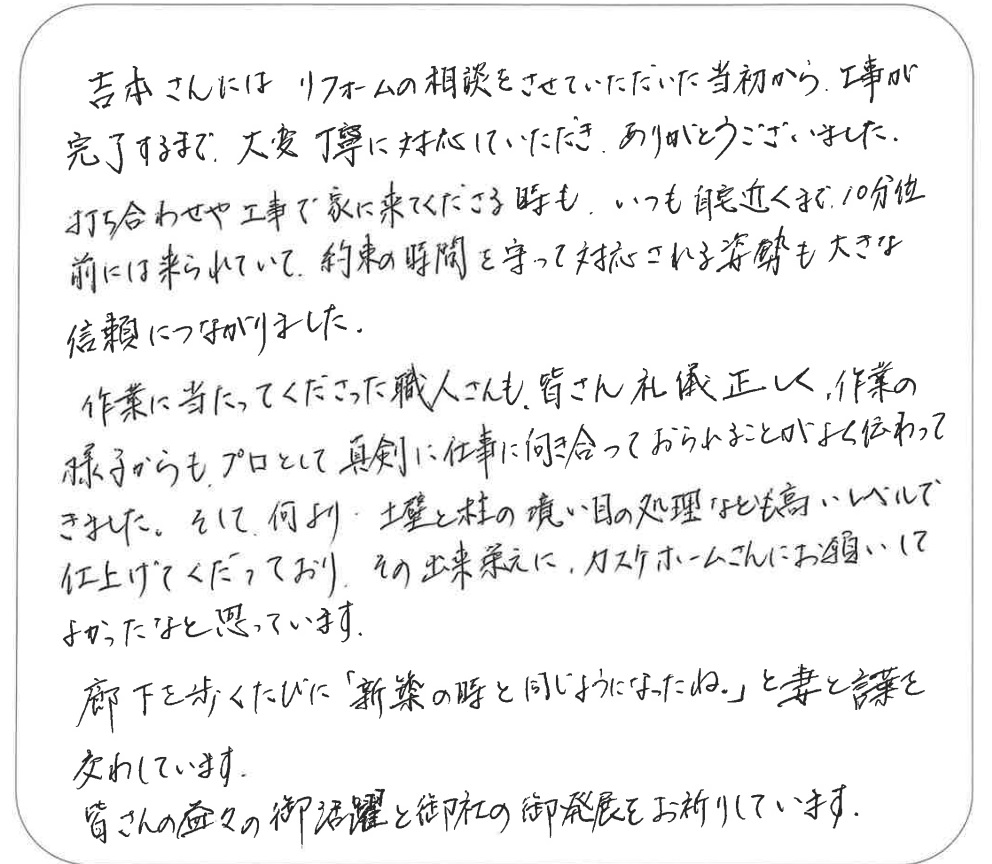 吉本さんには リフォームの相談をさせていただいた当初から、工事が
完了するまで、大変丁寧に対応していただき、ありがとうございました。
打ち合わせや工事で家に来てくださる時も、いつも自宅近くまで、10分位
前には来られていて、約束の時間を守って対応される姿勢も大きな
信頼につながりました。
作業に当たってくださった職人さんも、皆さん礼儀正しく、作業の
様子からも、プロとして真剣に仕事に向き合っておられることがよく伝わって
きました。そして、何より、土壁と柱の境い目の処理なども高いレベルで
仕上げてくだっており、その出来栄えに、カスケホームさんにお願いして
よかったなと思っています。
廊下を歩くたびに「新築の時と同じようになったね。」と妻と言葉を
交わしています。
皆さんの益々の御活躍と御社の御発展をお祈りしています。